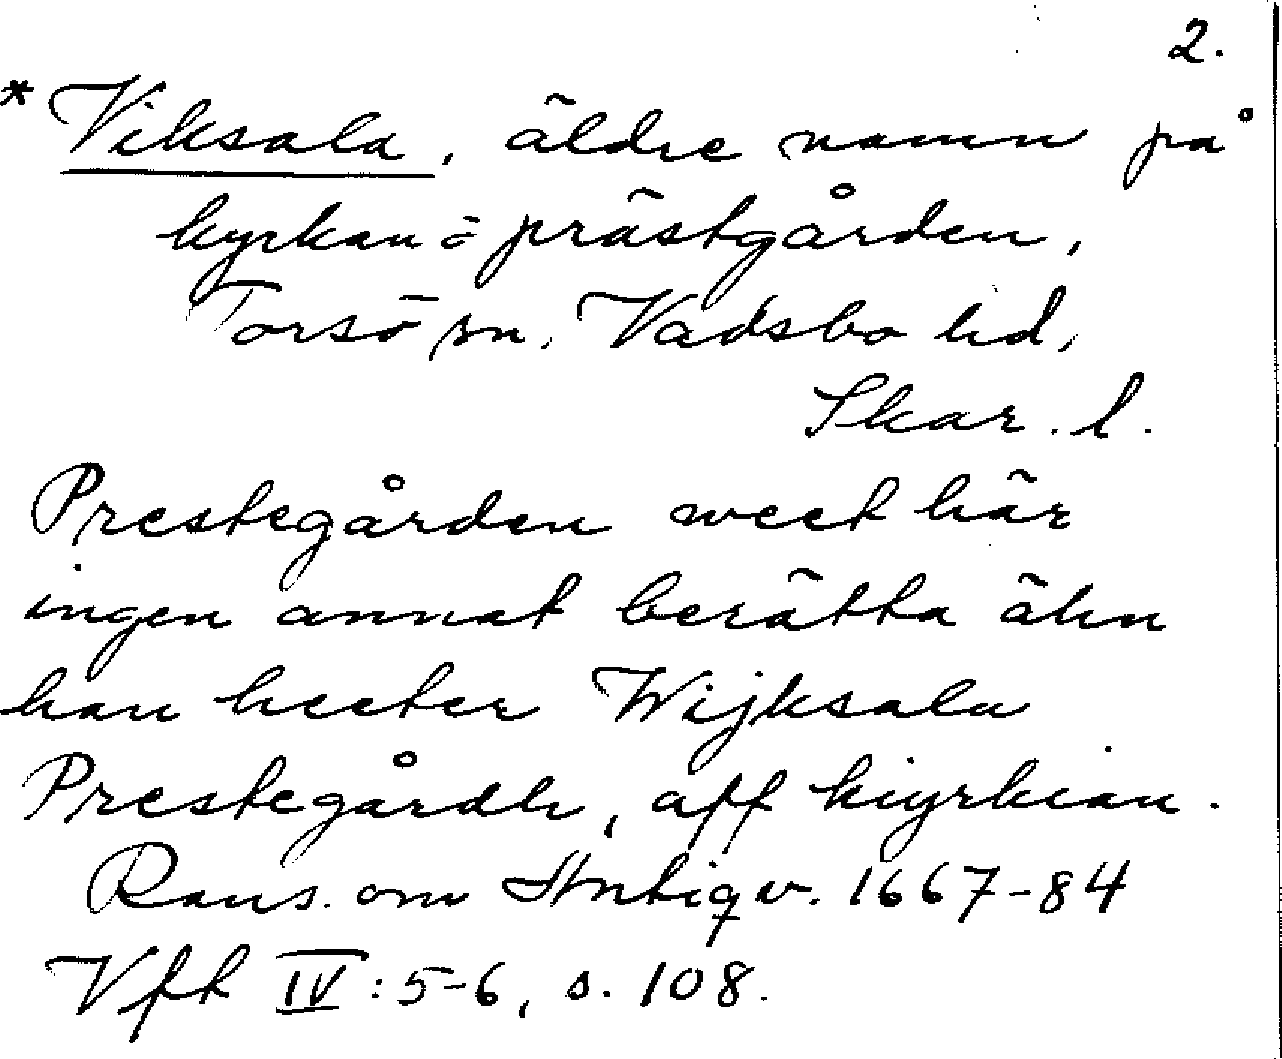 2.
* Viksala, äldre namn på
kyrkan o prästgården,
Torsö sn, Vadsbo hd,
Skar. l.
Prestegården weet här
ingen annat berätta ähn
han heeter Wijksala
Prestegårdh, aff kiyrkian.
Rans. om Antiqv. 1667-84
Vft IV:5-6, s. 108.